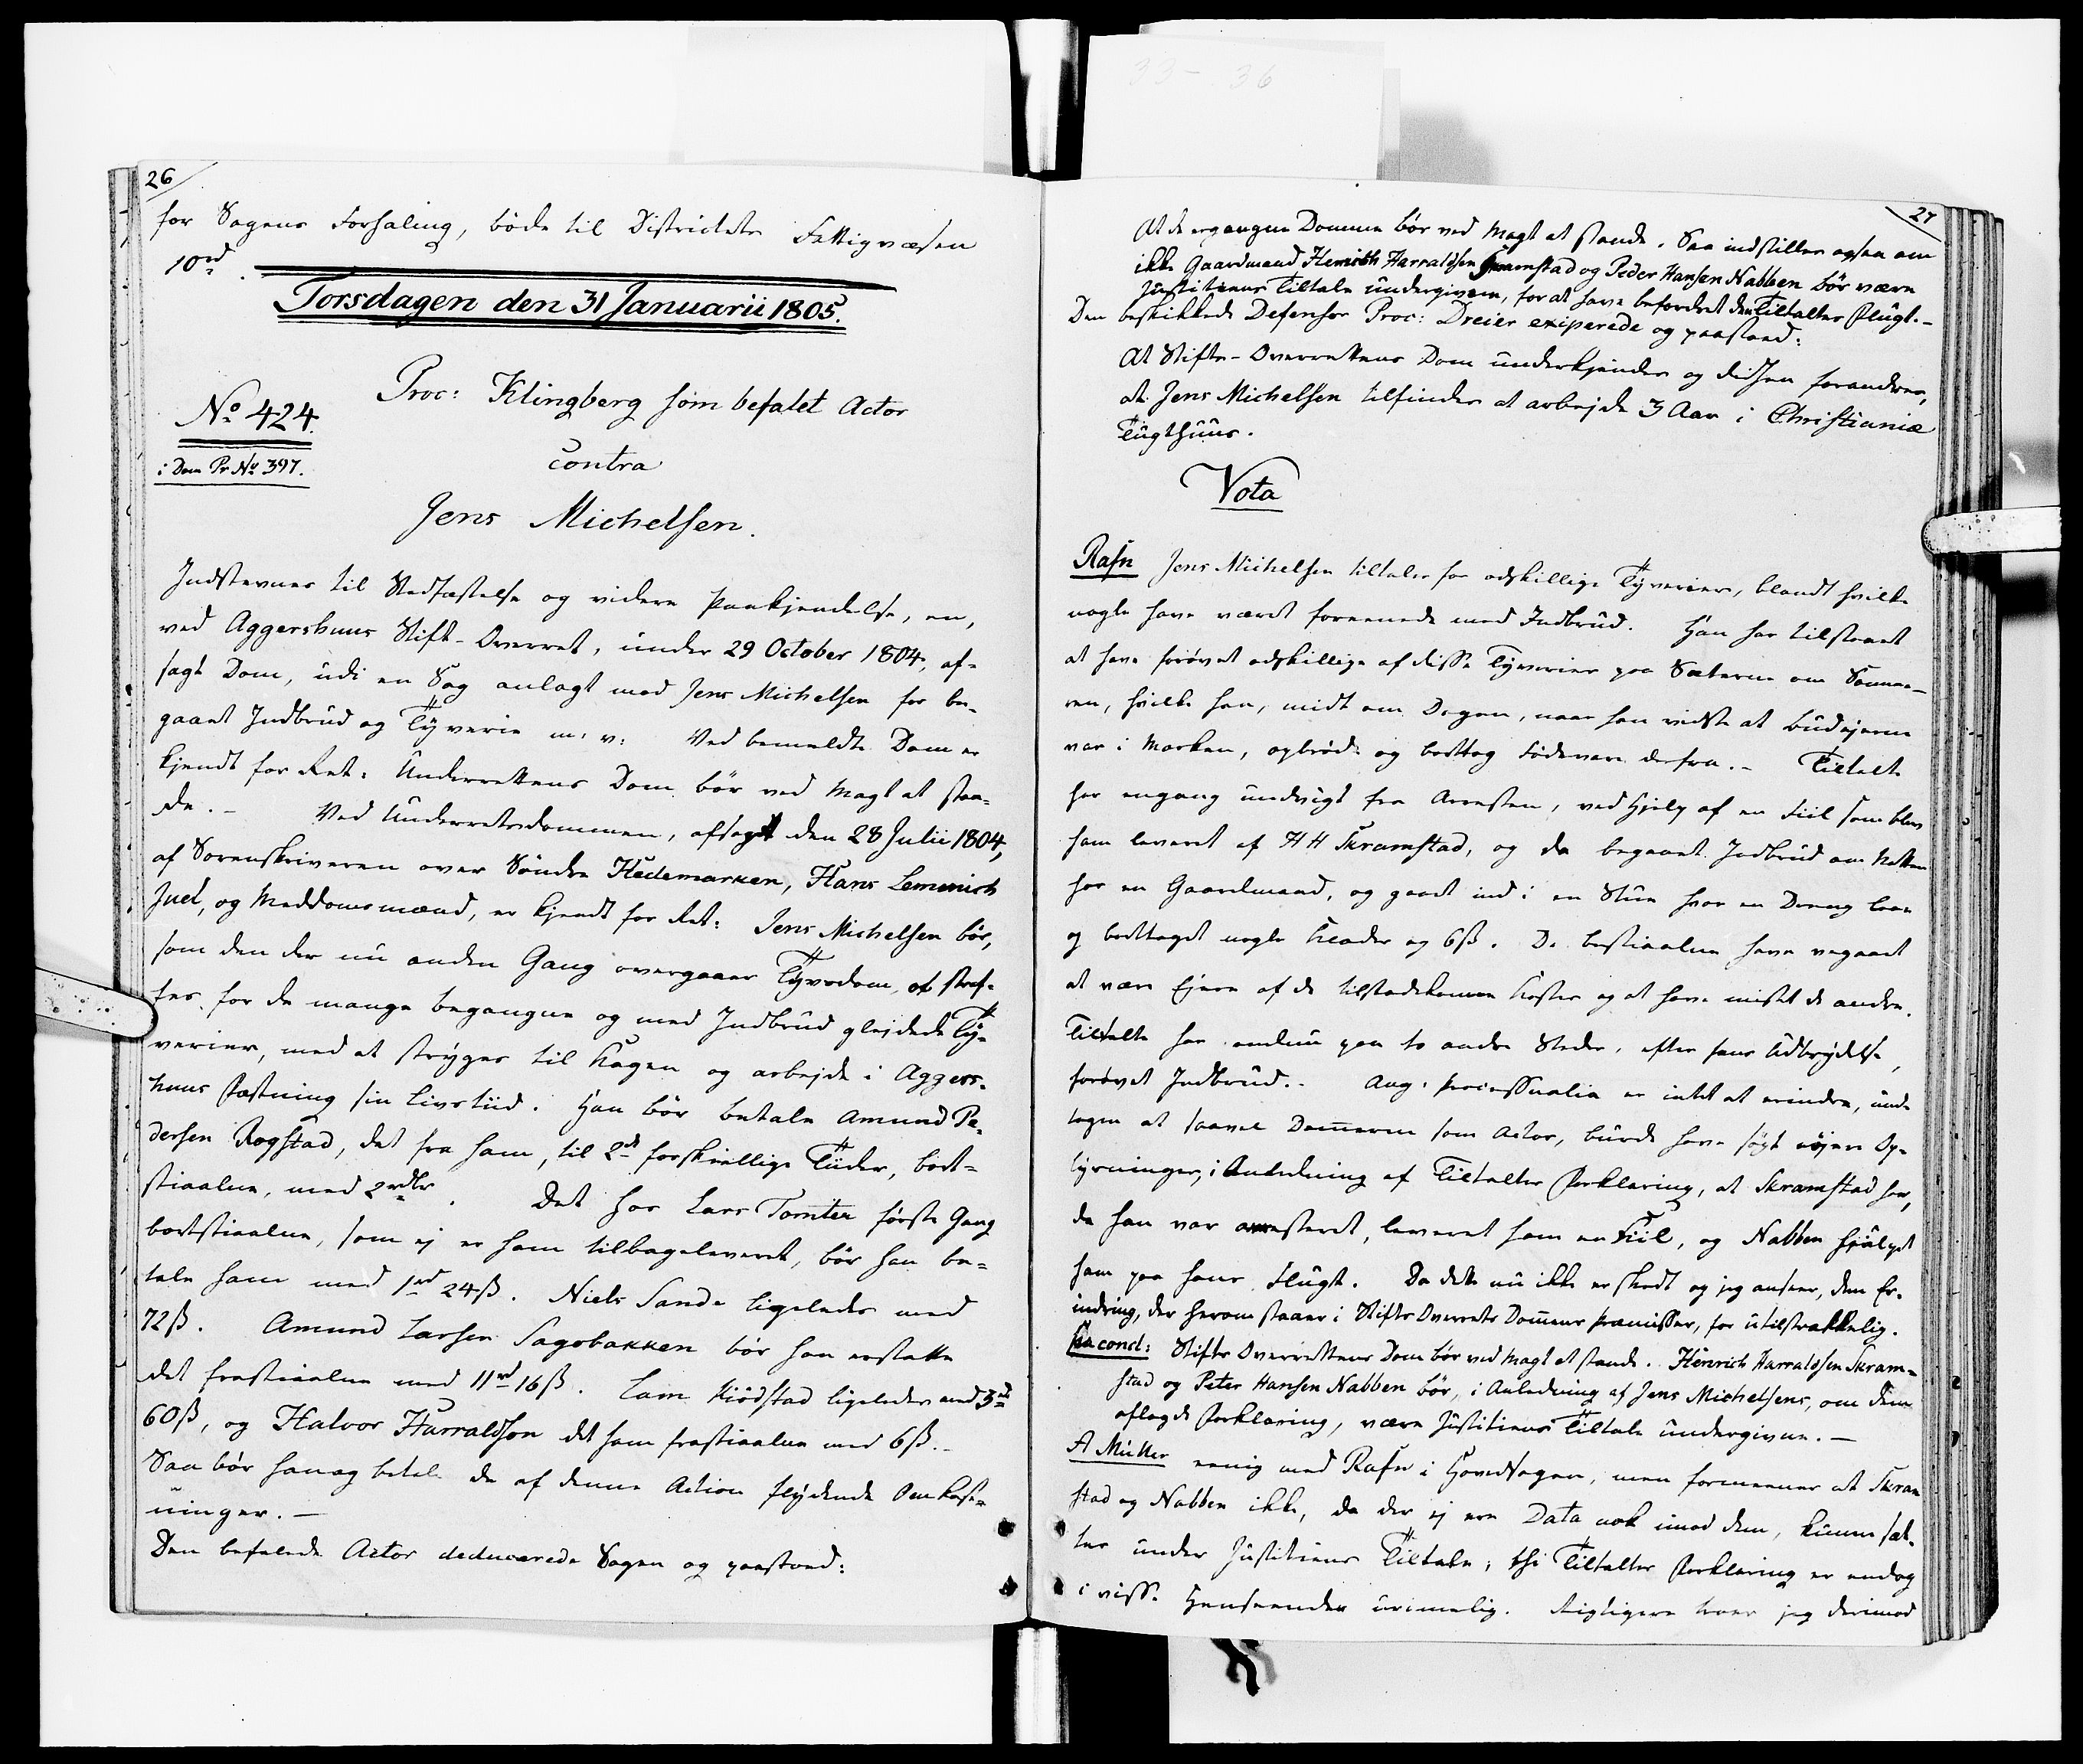 26
for Sagens Forhaling, bøde til Districtets Fattigvæsen
10rd.
Torsdagen den 31 Januarii 1805.
No 424.
i Dom Pr No 397.
Proc: Klingberg som befalet Actor
contra
Jens Michelsen.
Indstevnes til Stadfæstelse og videre Paakjendelse, en,
ved Aggershuus Stift-Overret, under 29 October 1804, af-
sagt Dom, udi en Sag anlagt mod Jens Michelsen for be-
gaaet Indbrud og Tyverie m: v: Ved bemeldte Dom er
kjendt for Ret: Underrettens Dom bør ved Magt at staa-
de. - Ved Underretsdommen, afsagt den 28 Julii 1804,
af Sorenskriveren over Søndre Hedemarken, Hans Lemmich
Juel, og Meddomsmænd, er kjendt for Ret: Jens Michelsen bør,
som den der nu anden Gang overgaaer Tyvsdom, at straf-
fes for de mange begangne og med Indbrud glejdede Ty-
verier, med at stryges til Kagen og arbejde i Aggers-
huus Fæstning sin Livstiid. Han bør betale Amund Pe-
dersen Rogstad, det fra ham, til 2de forskiellige Tiider, bort-
stiaalne, med 2rdlr. Det hos Lars Tomter første Gang
bortstiaalne, som ej er ham tilbageleveret, bør han be-
tale ham med 1rd 24ß. Niels Sande ligeledes med
72ß. Amund Larsen Sagobakken bør han erstatte
det frastiaalne med 11rd 16ß. Lars Kiødstad ligeledes med 3rd
60ß, og Halvor Harraldsen det ham frastiaalne med 6ß.-
Saa bør han og betale de af denne Action flydende Omkost-
ninger. -
Den befalede Actor deducerede Sagen og paastod:
27
At de ergangne Domme bør ved Magt at stande. Saa indstilles ogsaa om
ikke Gaardmand Henrich Harraldsen Skramstad og Peder Hansen Nabben bør være
Justitiens Tiltale undergivne, for at have befordret den Tiltaltes Flugt. -
Den beskikkede Defensor Proc: Dreier exiperede og paastod:
At Stifts-Overrettens Dom underkjendes og didhen forandres,
at Jens Michelsen tilfindes at arbejde 3 Aar i Christianiæ
Tugthuus.
Vota
Rafn Jens Michelsen tiltales for adskillige Tyverier, blandt hvilke
nogle have været foreenede med Indbrud. Han har tilstaaet
at have forøvet adskillige af disse Tyverier paa Sæterne om Somme-
ren, hvilke han, midt om Dagen, naar han vidste at Budejerne
var i Marken, opbrød og borttog Fødevare derfra. - Tiltalte
har engang undvigt fra Arresten, ved Hjelp af en Fiil som blev
ham leveret af H H Skramstad, og da begaaet Indbrud om Natten
hos en Gaardmand, og gaaet ind i en Stue hvor en Dreng laae
og borttaget nogle Klæder og 6ß. De bestiaalne have vegaaet
at være Ejere af de tilstædekomne Koster og at have mistet de andre.
Tiltalte har endnu paa to andre Steder, efter hans Udbrydelse,
forøvet Indbrud. - Ang: Processualia er intet at erindre, und-
tagen at saavel Dommeren som Actor, burde have søgt nøjere Op-
lysninger, i Anledning af Tiltaltes Forklaring, at Skramstad har,
da han var arresteret, leveret ham en Fiil, og Nabben hjulpet
ham paa hans Flugt. Da dette nu ikke er skeet og jeg anseer, den Er-
indring, der herom staaer i Stifts Overrets Dommens Præmisser, for utilstrækkelig.
Sa concl: Stifts Overrettens Dom bør ved Magt at stande. Henrich Harraldsen Skram-
stad og Peter Hansen Nabben bør, i Anledning af Jens Michelsens, om dem
aflagde Forklaring, være Justitiens Tiltale undergivne. -
A Müller eenig med Rafn i Hovedsagen, men formeener at Skram
stad og Nabben ikke, da der ej ere Data nok imod dem, kunne sæt-
tes under Justitiens Tiltale, thi Tiltaltes Forklaring er endog
i visse Henseender urimelig. Rigtigere troer jeg derimod